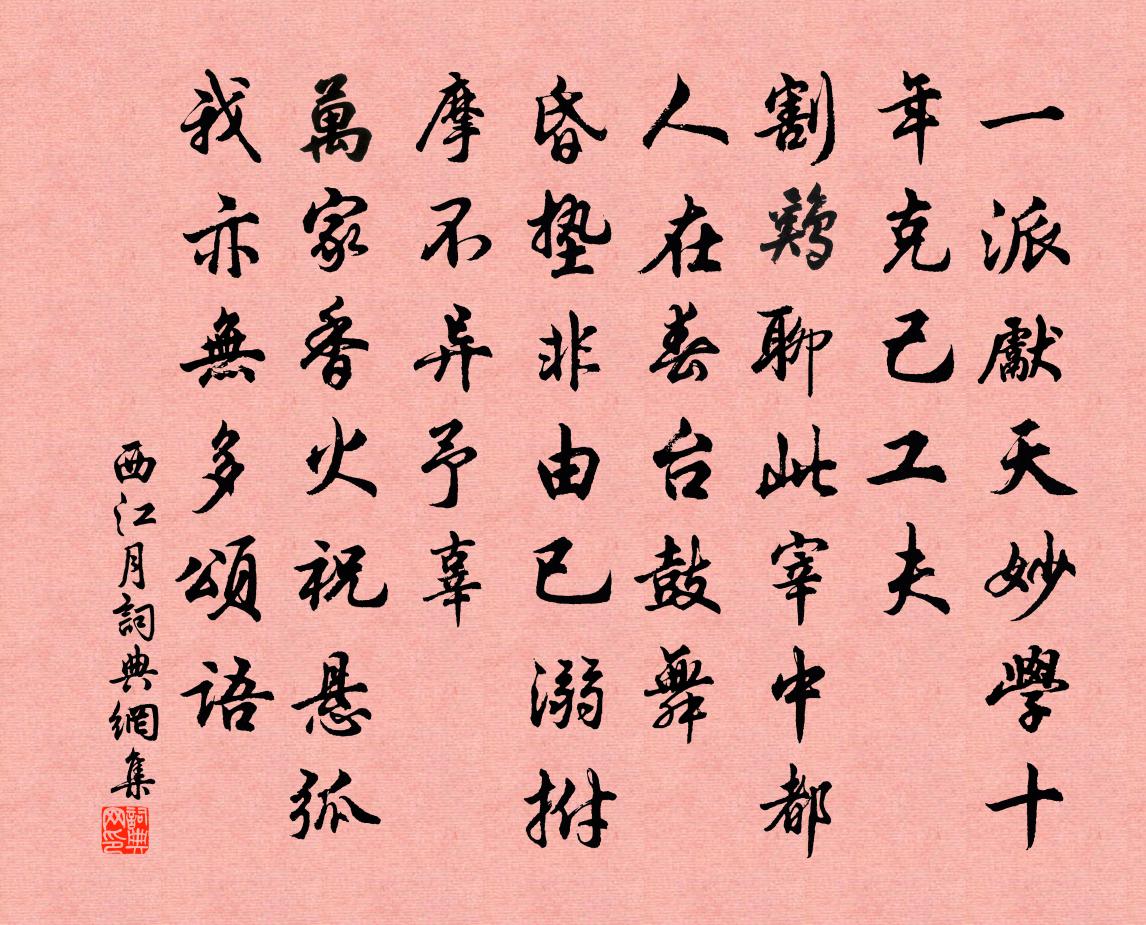 一派獻天妙學十
年克己工夫
割鷄聊此宰中都
人在春台鼓舞
昏墊非由已溺拊
摩不异予辜
萬家香火祝悬弧
我亦無多頌语
西江月詞典網集
詞典网印